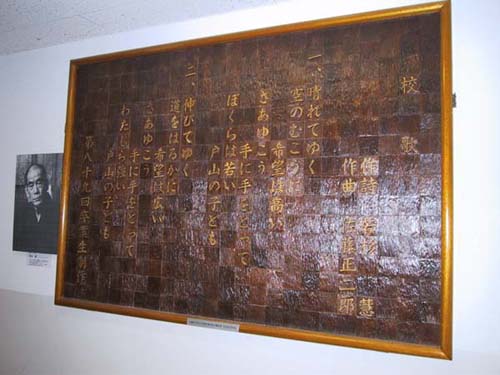 校歌
作詩 慧
作曲 佐藤正二郎
一、晴れてゆく
空のむこうに
希望は高い
さあゆこう
手に手をとって
ぼくらは若い
戸山の子ども
二、伸びてゆく
道をはるかに
希望は広い
さあゆこう
手に手をとって
強い
戸山の子ども
第八十九回卒業生制作